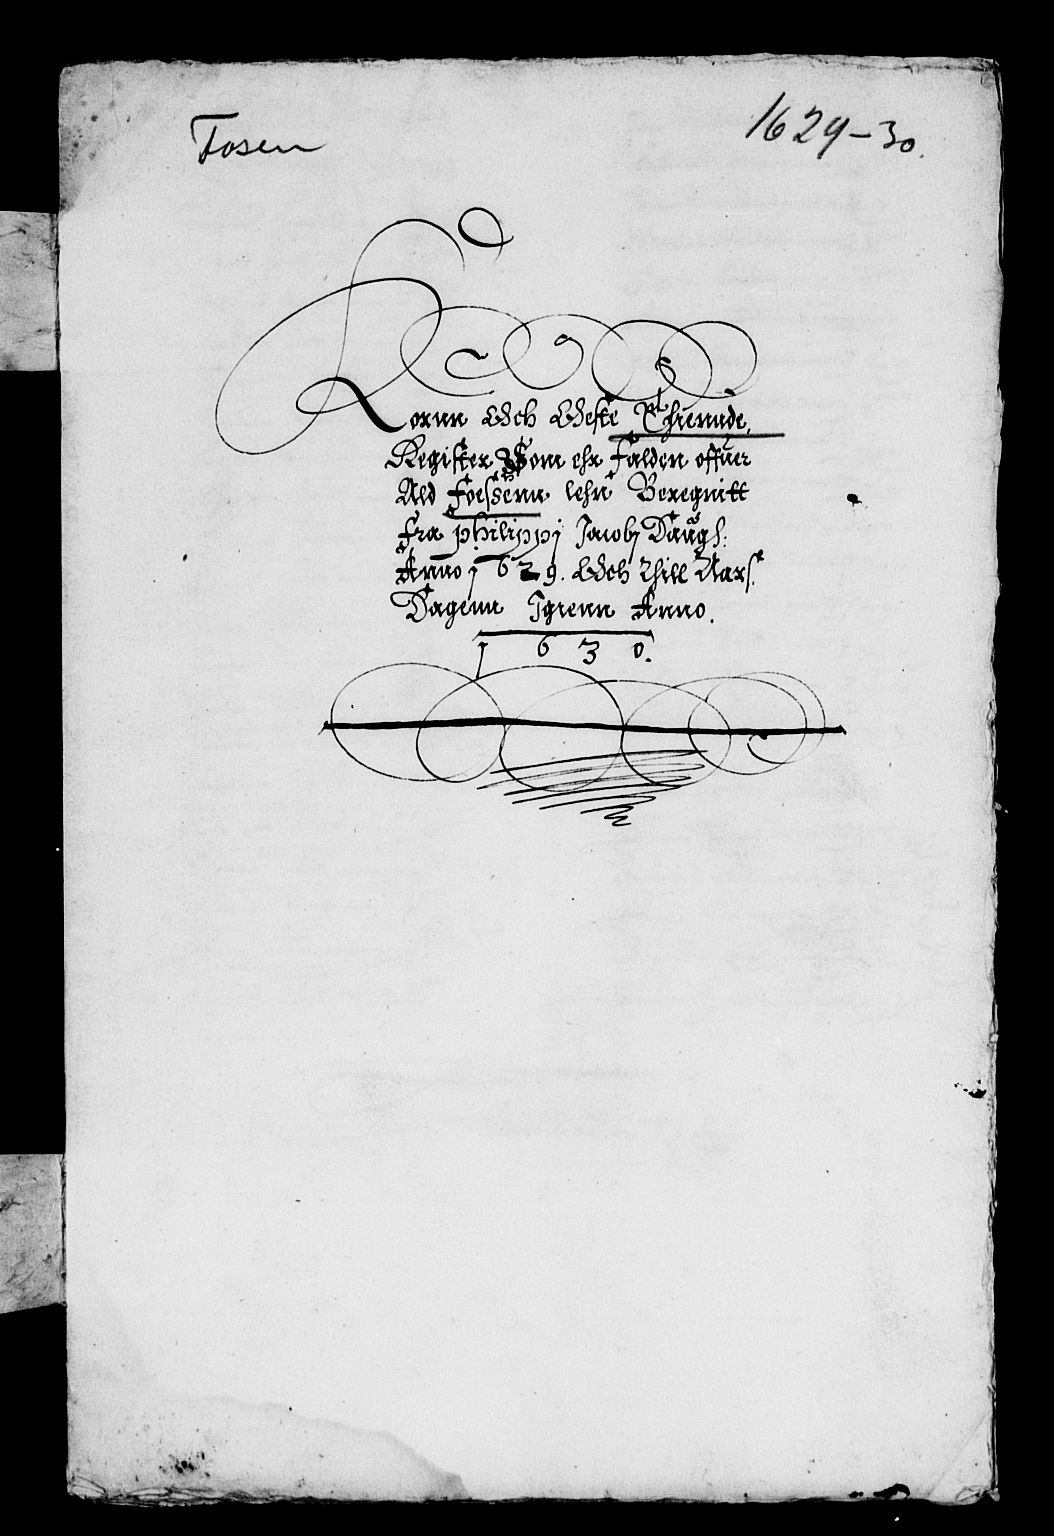 Fosen
1629-30.
Kornn Och Oeste Thiennde,
Register Som ehr falden offuer
Ald Foessenn lehn Beregnitt
fra philippj Jacobj Daugh:
Anno 1629. Och Thill Aars
Dagenn Igienn Anno.
1630.